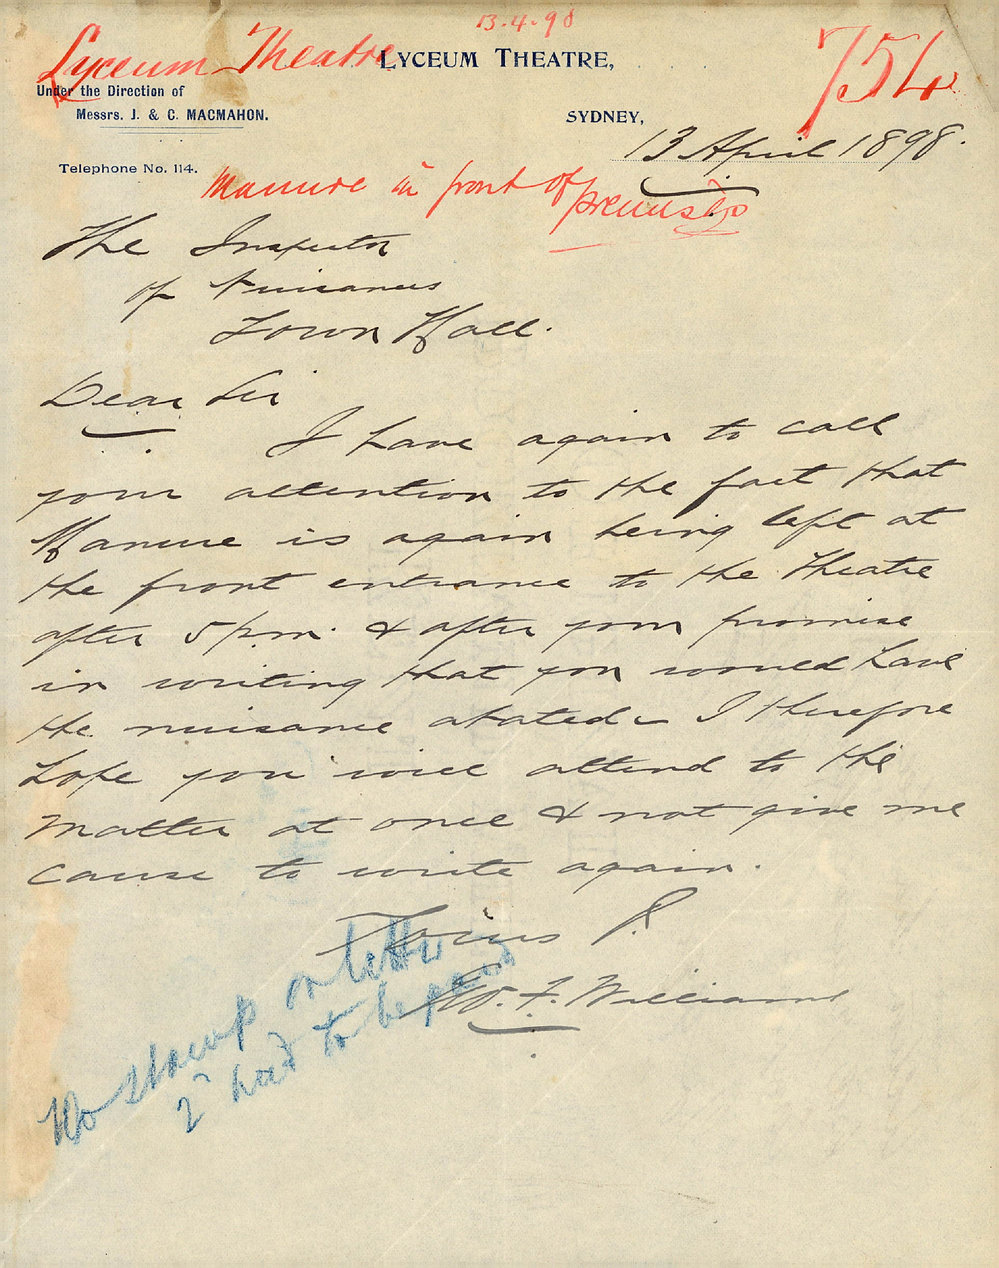 13.4.98
Lyceum Theatre
LYCEUM THEATRE,
754
Under the Direction of
Messrs. J. & C. MACMAHON.
SYDNEY,
13 April 1898.
Telephone No. 114.
Manure in front of
premises
The Inspector
of Nuisances
Town Hall.
Dear Sir
I have again to call
your attention to the fact that
Manure is again being left at
the front entrance to the Theatre
after 5 p.m. & after your promise
in writing that you would have
the nuisance abated. I therefore
hope you will attend to the
matter at once & not give me
cause to write again.
Yours
W. F. Williams
No stamp on letter
2d had to be paid